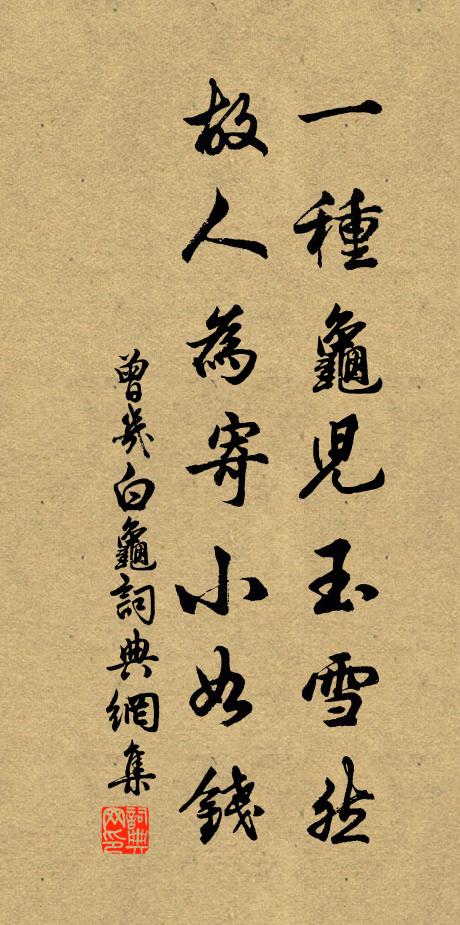 一種龜兒玉雪然
故人為寄小如錢
曾幾白龜詞典網集
詞典網印